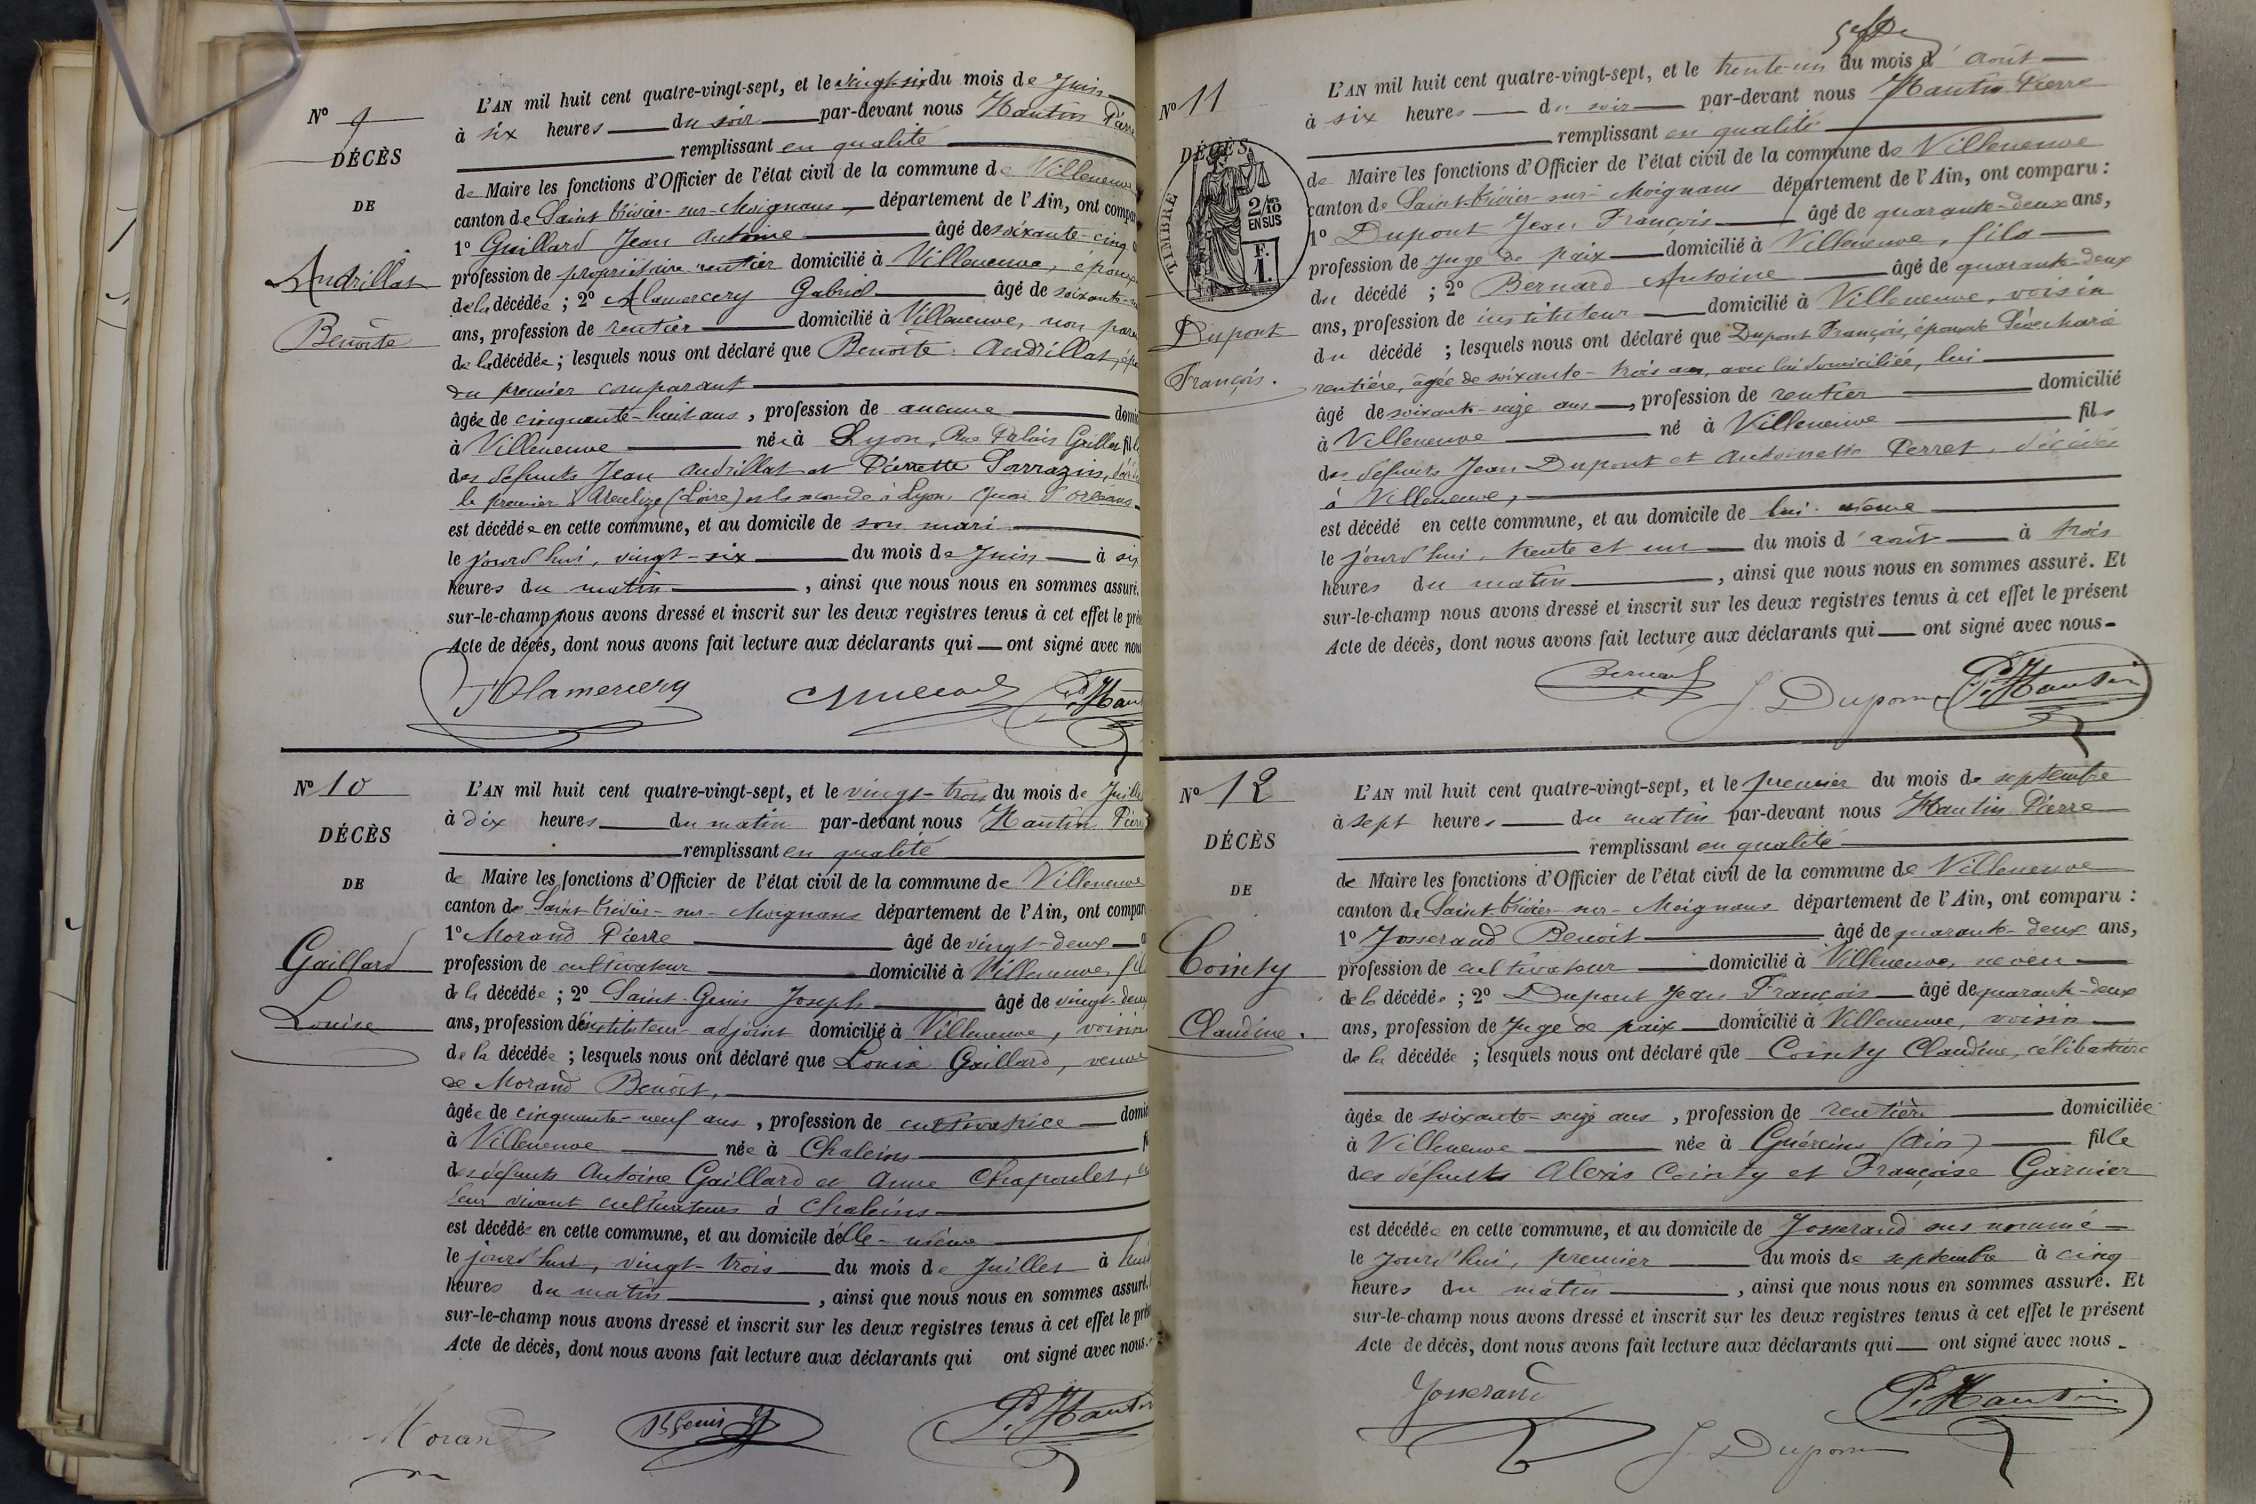 Nº 9
DÉCÈS
DE
Andrillat
Benoite
L'AN mil huit cent quatre-vingt-sept, et le vingt-six du mois de Juin
à six heures du soir par-devant nous Hautin Pierre
remplissant en qualité
de Maire les fonctions d'Officier de l'état civil de la commune de Villeneuve
canton de Saint-Trivier-sur-Moignans, département de l'Ain, ont compar
1º Guillard Jean Antoine âgé de soixante-cinq
profession de propriétaire rentier domicilié à Villeneuve, époux
de la décédée ; 2º Alamercery Gabriel âgé de soixante-
ans, profession de rentier domicilié à Villeneuve, non paren
de la décédée ; lesquels nous ont déclaré que Benoite Andrillat, épo
du premier comparant
âgée de cinquante-huit ans, profession de aucune domic
à Villeneuve née à Lyon, Rue Palais Grillet fille
des défunts Jean Andrillat et Pierrette Sarrazin, décédé
le premier à (Loire) et la seconde à Lyon, quai d'Orléans
est décédée en cette commune, et au domicile de son mari
le jourd'hui, vingt-six du mois de Juin à six
heures du matin, ainsi que nous nous en sommes assuré.
sur-le-champ nous avons dressé et inscrit sur les deux registres tenus à cet effet le prés
Acte de décès, dont nous avons fait lecture aux déclarants qui — ont signé avec nou
Alamercery P. Haut
Nº 10
DÉCÈS
DE
Gaillard
Louise
L'AN mil huit cent quatre-vingt-sept, et le vingt-trois du mois de Juille
à dix heures du matin par-devant nous Hautin Pierr
remplissant en qualité
de Maire les fonctions d'Officier de l'état civil de la commune de Villeneuve
canton de Saint-Trivier-sur-Moignans département de l'Ain, ont compar
1º Morand Pierre âgé de vingt-deux a
profession de cultivateur domicilié à Villeneuve, fil
de la décédée ; 2º Saint-Genis Joseph âgé de vingt-deux
ans, profession d'instituteur-adjoint domicilié à Villeneuve, voisin
de la décédée ; lesquels nous ont déclaré que Louise Gaillard, veuve
de Morand Benoit,
âgée de cinquante-neuf ans, profession de cultivatrice domic
à Villeneuve née à Chaleins f
des défunts Antoine Gaillard et Anne Chapoulet,
leur vivant cultivateurs à Chaleins
est décédée en cette commune, et au domicile d'elle-même
le jourd'hui, vingt-trois du mois de Juillet à huit
heures du matin, ainsi que nous nous en sommes assuré.
sur-le-champ nous avons dressé et inscrit sur les deux registres tenus à cet effet le prés
Acte de décès, dont nous avons fait lecture aux déclarants qui ont signé avec nous.
Morand St Genis J P. Hautin
Nº 11
DÉCÈS
TIMBRE
2/10
EN SUS
F.
1.
Dupont
François.
L'AN mil huit cent quatre-vingt-sept, et le trente-un du mois d'août
à six heures — du soir — par-devant nous Hautin Pierre
remplissant en qualité
de Maire les fonctions d'Officier de l'état civil de la commune de Villeneuve
canton de Saint-Trivier-sur-Moignans département de l'Ain, ont comparu :
1º Dupont Jean François âgé de quarante-deux ans,
profession de Juge de paix domicilié à Villeneuve, fils
du décédé ; 2º Bernard Antoine âgé de quarante-deux
ans, profession de instituteur domicilié à Villeneuve, voisin
du décédé ; lesquels nous ont déclaré que Dupont François, époux de
rentière, âgée de soixante-trois ans, avec lui domiciliée, lui
âgé de soixante-seize ans, profession de rentier domicilié
à Villeneuve né à Villeneuve fils
des défunts Jean Dupont et Antoinette Perret, décédés
à Villeneuve,
est décédé en cette commune, et au domicile de lui-même
le jourd'hui, trente et un du mois d'août à trois
heures du matin, ainsi que nous nous en sommes assuré. Et
sur-le-champ nous avons dressé et inscrit sur les deux registres tenus à cet effet le présent
Acte de décès, dont nous avons fait lecture aux déclarants qui — ont signé avec nous-
Bernard J. Dupont P. Hautin
Nº 12
DÉCÈS
DE
Cointy
Claudine.
L'AN mil huit cent quatre-vingt-sept, et le premier du mois de septembre
à sept heures — du matin par-devant nous Hautin Pierre
remplissant en qualité
de Maire les fonctions d'Officier de l'état civil de la commune de Villeneuve
canton de Saint-Trivier-sur-Moignans département de l'Ain, ont comparu :
1º Josserand Benoit âgé de quarante-deux ans,
profession de cultivateur domicilié à Villeneuve, neveu
de la décédée ; 2º Dupont Jean François âgé de quarante-deux
ans, profession de Juge de paix domicilié à Villeneuve, voisin
de la décédée ; lesquels nous ont déclaré que Cointy Claudine, célibataire
âgée de soixante-seize ans, profession de rentière domiciliée
à Villeneuve née à Guéreins (Ain) fille
des défunts Alexis Cointy et Françoise Garnier
est décédée en cette commune, et au domicile de Josserand sus nommé
le jourd'hui, premier du mois de septembre à cinq
heures du matin, ainsi que nous nous en sommes assuré. Et
sur-le-champ nous avons dressé et inscrit sur les deux registres tenus à cet effet le présent
Acte de décès, dont nous avons fait lecture aux déclarants qui — ont signé avec nous -
Josserand J. Dupont P. Hautin